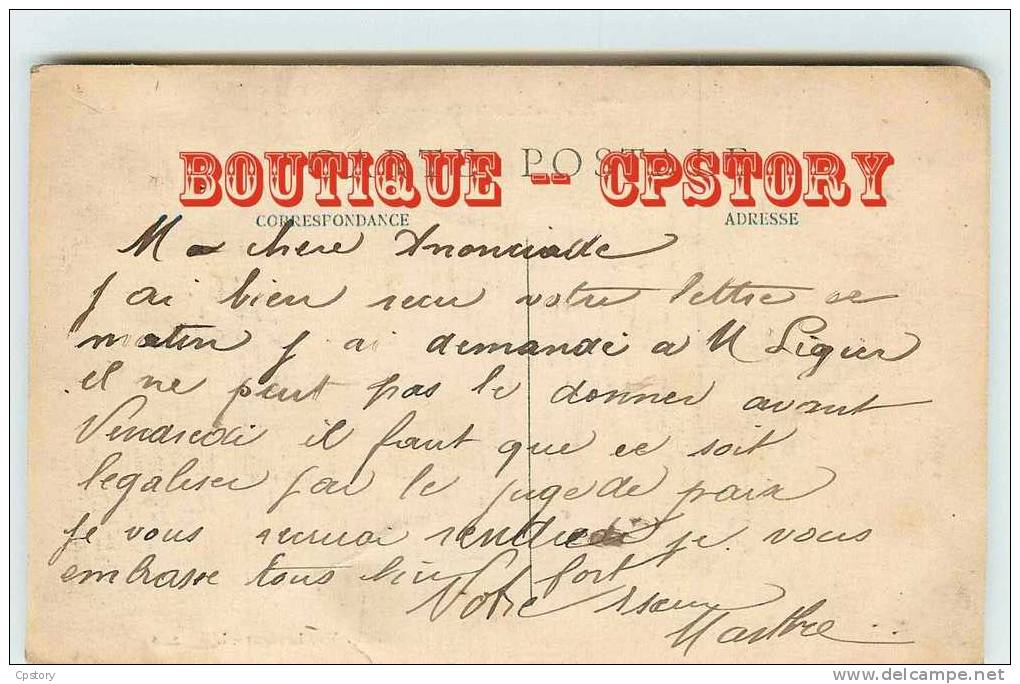 CARTE POSTALE
BOUTIQUE -- CPSTORY
CORRESPONDANCE ADRESSE
Ma chere Anonciade
j ai bien recu votre lettre ce
matin j ai demandé a M Ligier
il ne peut pas le donner avant
Vendredi il faut que ce soit
legaliser par le juge de paix
je vous vendredi je vous
embrasse tous bien fort
Votre sœur
Marthe
Cpstory
delcampe.net